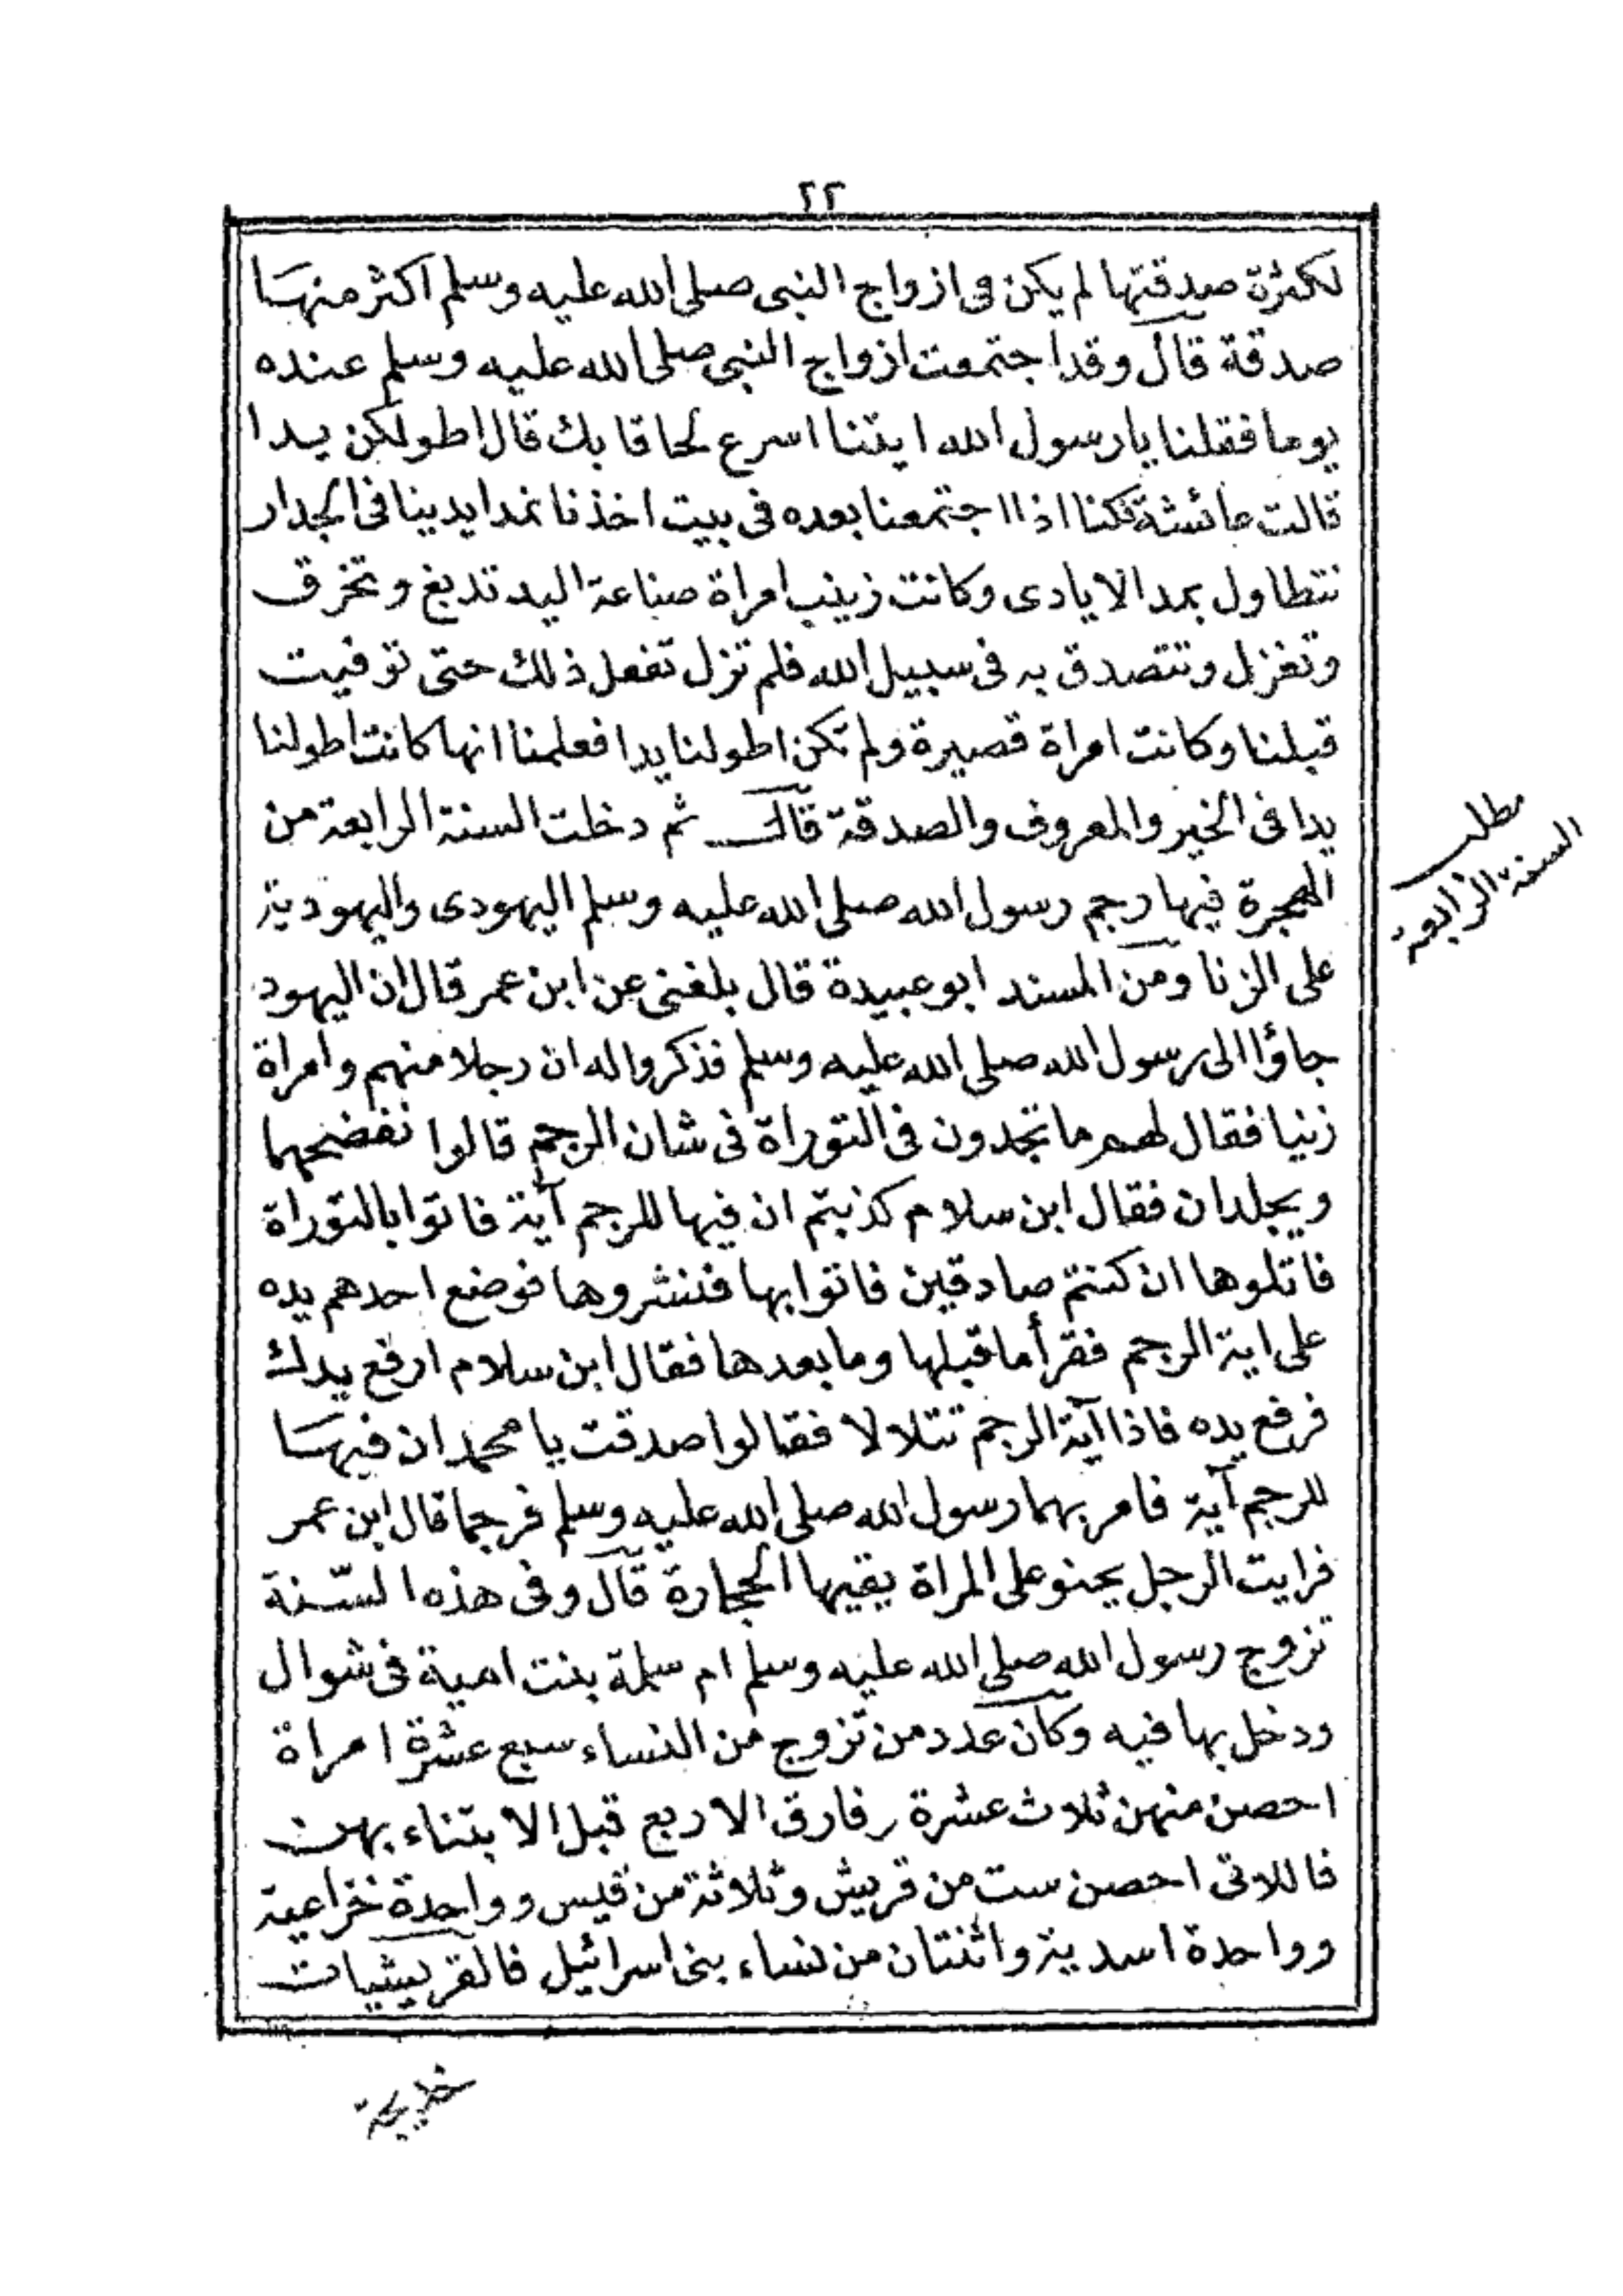 ٢٢
لكثرة صدقتها لم يكن فى ازواج النبى صلى الله عليه وسلم اكثر منها
صدقة قال وقد اجتمعت ازواج النبى صلى الله عليه وسلم عنده
يوما فقلنا يا رسول الله ايتنا اسرع لحاقا بك قال اطولكن يدا
قالت عائشة فكنا اذا اجتمعنا بعده فى بيت اخذنا نمد ايدينا فى الجدار
نتطاول بمد الايادى وكانت زينب امراة صناعة اليد تدبغ وتخرق
وتغزل وتتصدق به فى سبيل الله فلم تزل تفعل ذلك حتى توفيت
قبلنا وكانت امراة قصيرة ولم تكن اطولنا يدا فعلمنا انها كانت اطولنا
يدا فى الخير والمعروف والصدقة قال ثم دخلت السنة الرابعة من
الهجرة فيها رجم رسول الله صلى الله عليه وسلم اليهودى واليهودية
على الزنا ومن المسند ابو عبيدة قال بلغنى عن ابن عمر قال ان اليهود
جاؤا الى رسول الله صلى الله عليه وسلم فذكروا له ان رجلا منهم وامراة
زنيا فقال لهم ما تجدون فى التوراة فى شان الرجم قالوا نفضحهما
ويجلدان فقال ابن سلام كذبتم ان فيها للرجم آية فاتوا بالتوراة
فاتلوها ان كنتم صادقين فاتوا بها فنشروها فوضع احدهم يده
على اية الرجم فقرأ ما قبلها وما بعدها فقال ابن سلام ارفع يدك
فرفع يده فاذا آية الرجم تتلالا فقالوا صدقت يا محمد ان فيها
للرجم آية فامر بهما رسول الله صلى الله عليه وسلم فرجما قال ابن عمر
فرايت الرجل يحنو على المراة يقيها الحجارة قال وفى هذه السّنة
تزوج رسول الله صلى الله عليه وسلم ام سلمة بنت امية فى شوال
ودخل بها فيه وكان عدد من تزوج من النساء سبع عشرة امراة
احصن منهن ثلاث عشرة وفارق الاربع قبل الابتناء بهن
فاللاتى احصن ست من قريش وثلاثة من قيس وواحدة خزاعية
وواحدة اسدية واثنتان من نساء بنى اسرائيل فالقريشيات
مطلب
السنة الرابعة
خديجة